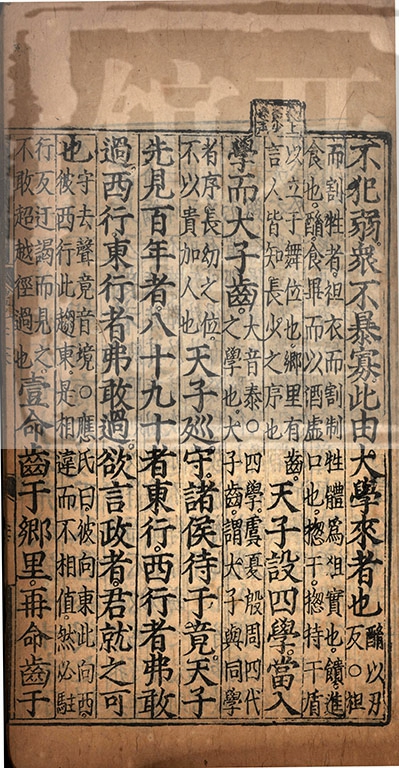 不犯弱。衆不暴寡。此由大學來者也酳以刃
反○袒
而割牲者。袒衣而割制牲體為俎實也。饋進
食也。酳食畢而以酒虛口也。揔干。揔持干盾
以立于舞位也。鄉里有齒。
言人皆知長少之序也
天子設四學。當入
學而大子齒。大音泰。○四學。虞夏殷周四代
之學也。大子齒。謂大子與同學
者序長幼之位。
不以貴加人也
天子廵守。諸侯待于竟。天子
先見百年者。八十九十者東行。西行者弗敢
過西行東行者弗敢過。欲言政者。君就之可
也守去聲。竟音境。○應氏曰。彼向東此向西。
彼西行此趨東。是相違而不相值。然必駐
行反迂謁而見之。
不敢超越徑過也
壹命齒于鄉里。再命齒于